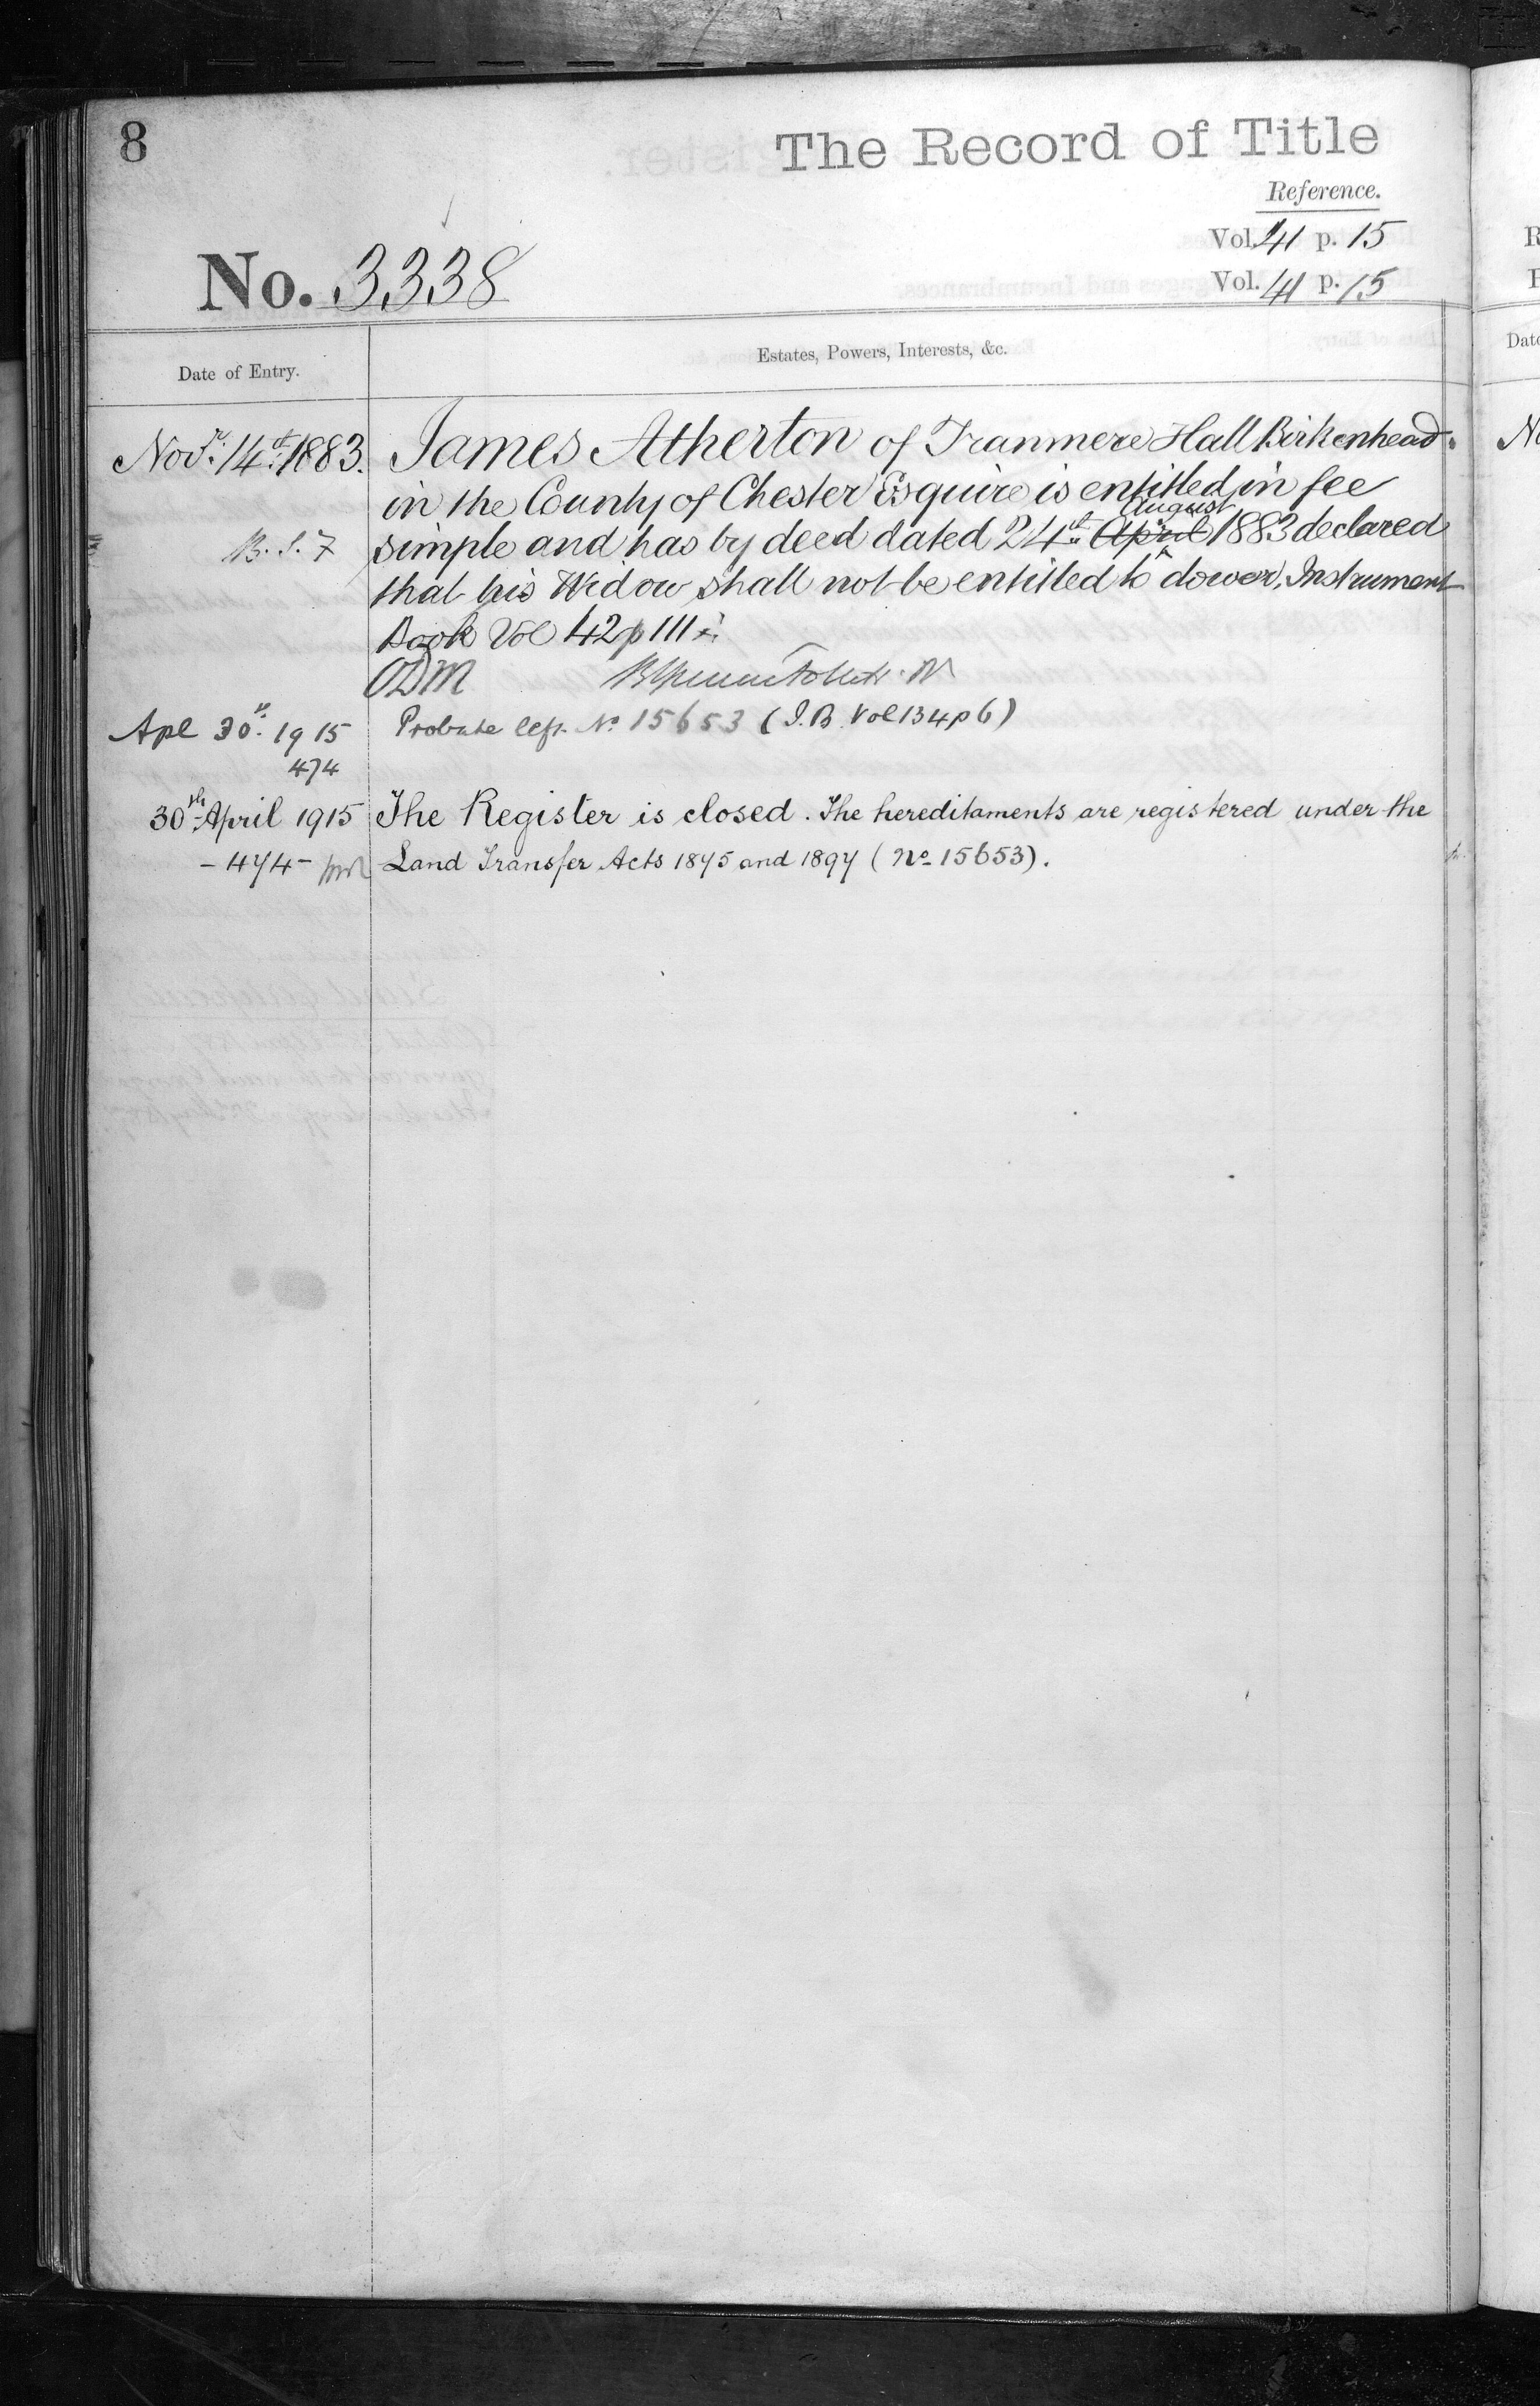 8
The Record of Title
Reference.
Vol. 41 p. 15
Vol. 41 p. 15
No. 3338
Date of Entry.
Estates, Powers, Interests, &c.
Novr. 14th 1883.
James Atherton of Tranmere Hall Birkenhead
in the County of Chester Esquire is entitled in fee
August
simple and has by deed dated 24th April 1883 declared
that his Widow shall not be entitled to dower. Instrument
Book Vol 42 p 111
ODM
Apl 30th 1915
Probate No 15653 (I.B. Vol 134 p 6)
474
30th April 1915
The Register is closed. The hereditaments are registered under the
- 474 -
Land Transfer Acts 1875 and 1897 (No 15653).